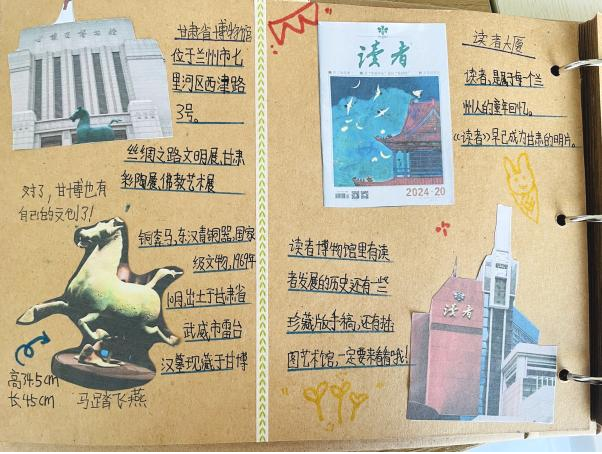 甘肃省博物馆
位于兰州市七
里河区西津路
3号。
丝绸之路文明展,甘肃
彩陶展,佛教艺术展
对了,甘博也有
自己的文创了!
铜奔马,东汉青铜器,国家
级文物,1969年
10月,出土于甘肃省
武威市雷台
汉墓现藏于甘博
高34.5cm
长45cm
马踏飞燕
读者
2024·20
读者大厦
读者,是属于每个兰
州人的童年回忆。
《读者》早已成为甘肃的明片。
读者博物馆里有读
者发展的历史还有一些
珍藏版手稿,还有插
图艺术馆,一定要来看看哦!
读者